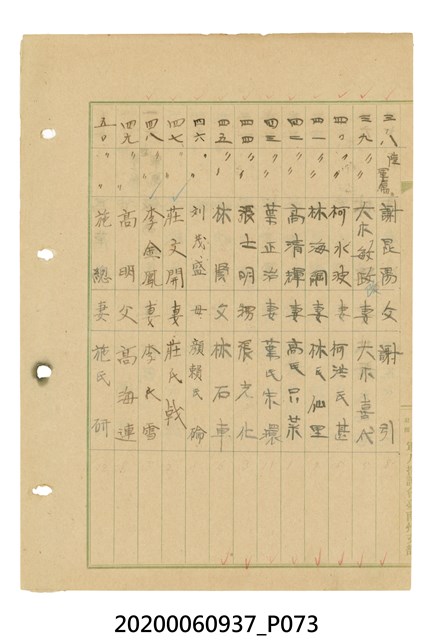 三八 陸軍 謝昆陽 父 謝引
三九 〃 〃 大木敏政 妻 大木喜代
四〇 〃 〃 柯水波 妻 柯洪氏甚
四一 〃 〃 林海 妻 林氏仙里
四二 〃 〃 高清輝 妻 高氏品菜
四三 〃 〃 葉正治 妻 葉氏宋環
四四 〃 〃 張士明 張光化
四五 〃 〃 林 父 林石車
四六 〃 〃 刘茂盛 母 顏賴氏
四七 〃 〃 莊文開 妻 莊氏
四八 〃 〃 李金鳳 妻 李氏雪
四九 〃 〃 高明 父 高海連
五〇 〃 〃 施總 妻 施氏研
20200060937_P073